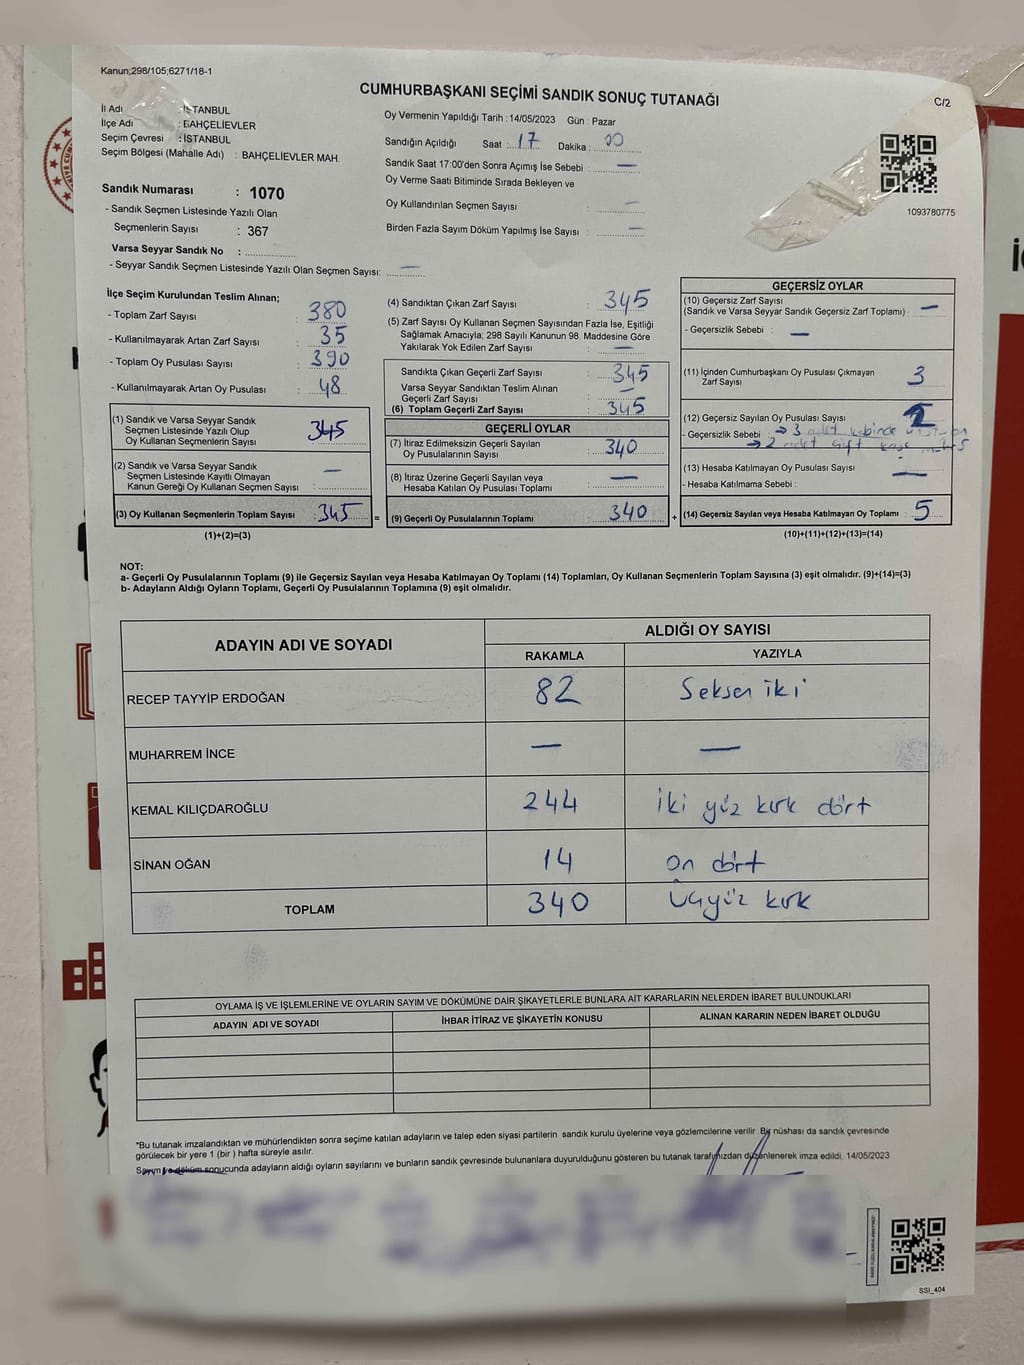 Kanun;298/105;6271/18-1
CUMHURBAŞKANI SEÇİMİ SANDIK SONUÇ TUTANAĞI
C/2
İl Adı : İSTANBUL
İlçe Adı : BAHÇELİEVLER
Seçim Çevresi : İSTANBUL
Seçim Bölgesi (Mahalle Adı) : BAHÇELİEVLER MAH.
Sandık Numarası : 1070
- Sandık Seçmen Listesinde Yazılı Olan
Seçmenlerin Sayısı : 367
Varsa Seyyar Sandık No :
- Seyyar Sandık Seçmen Listesinde Yazılı Olan Seçmen Sayısı: —
Oy Vermenin Yapıldığı Tarih : 14/05/2023 Gün : Pazar
Sandığın Açıldığı Saat : 17 Dakika : 00
Sandık Saat 17:00'den Sonra Açımış İse Sebebi : —
Oy Verme Saati Bitiminde Sırada Bekleyen ve
Oy Kullandırılan Seçmen Sayısı : —
Birden Fazla Sayım Döküm Yapılmış İse Sayısı : —
1093780775
İlçe Seçim Kurulundan Teslim Alınan;
- Toplam Zarf Sayısı : 380
- Kullanılmayarak Artan Zarf Sayısı : 35
- Toplam Oy Pusulası Sayısı : 390
- Kullanılmayarak Artan Oy Pusulası : 48
(1) Sandık ve Varsa Seyyar Sandık
Seçmen Listesinde Yazılı Olup
Oy Kullanan Seçmenlerin Sayısı : 345
(2) Sandık ve Varsa Seyyar Sandık
Seçmen Listesinde Kayıtlı Olmayan
Kanun Gereği Oy Kullanan Seçmen Sayısı : —
(3) Oy Kullanan Seçmenlerin Toplam Sayısı : 345 =
(1)+(2)=(3)
(4) Sandıktan Çıkan Zarf Sayısı : 345
(5) Zarf Sayısı Oy Kullanan Seçmen Sayısından Fazla İse, Eşitliği
Sağlamak Amacıyla; 298 Sayılı Kanunun 98. Maddesine Göre
Yakılarak Yok Edilen Zarf Sayısı : —
Sandıkta Çıkan Geçerli Zarf Sayısı : 345
Varsa Seyyar Sandıktan Teslim Alınan
Geçerli Zarf Sayısı : —
(6) Toplam Geçerli Zarf Sayısı : 345
GEÇERLİ OYLAR
(7) İtiraz Edilmeksizin Geçerli Sayılan
Oy Pusulalarının Sayısı : 340
(8) İtiraz Üzerine Geçerli Sayılan veya
Hesaba Katılan Oy Pusulası Toplamı : —
(9) Geçerli Oy Pusulalarının Toplamı : 340 +
GEÇERSİZ OYLAR
(10) Geçersiz Zarf Sayısı
(Sandık ve Varsa Seyyar Sandık Geçersiz Zarf Toplamı) : —
- Geçersizlik Sebebi : —
(11) İçinden Cumhurbaşkanı Oy Pusulası Çıkmayan
Zarf Sayısı : 3
(12) Geçersiz Sayılan Oy Pusulası Sayısı : 2
- Geçersizlik Sebebi → 3 adet kabinde
→ 2 adet çift kaşe
(13) Hesaba Katılmayan Oy Pusulası Sayısı : —
- Hesaba Katılmama Sebebi :
(14) Geçersiz Sayılan veya Hesaba Katılmayan Oy Toplamı : 5
(10)+(11)+(12)+(13)=(14)
NOT:
a- Geçerli Oy Pusulalarının Toplamı (9) ile Geçersiz Sayılan veya Hesaba Katılmayan Oy Toplamı (14) Toplamları, Oy Kullanan Seçmenlerin Toplam Sayısına (3) eşit olmalıdır. (9)+(14)=(3)
b- Adayların Aldığı Oyların Toplamı, Geçerli Oy Pusulalarının Toplamına (9) eşit olmalıdır.
ADAYIN ADI VE SOYADI
ALDIĞI OY SAYISI
RAKAMLA YAZIYLA
RECEP TAYYİP ERDOĞAN 82 Seksen iki
MUHARREM İNCE — —
KEMAL KILIÇDAROĞLU 244 iki yüz kırk dört
SİNAN OĞAN 14 on dört
TOPLAM 340 Üçyüz kırk
OYLAMA İŞ VE İŞLEMLERİNE VE OYLARIN SAYIM VE DÖKÜMÜNE DAİR ŞİKAYETLERLE BUNLARA AİT KARARLARIN NELERDEN İBARET BULUNDUKLARI
ADAYIN ADI VE SOYADI İHBAR İTİRAZ VE ŞİKAYETİN KONUSU ALINAN KARARIN NEDEN İBARET OLDUĞU
*Bu tutanak imzalandıktan ve mühürlendikten sonra seçime katılan adayların ve talep eden siyasi partilerin sandık kurulu üyelerine veya gözlemcilerine verilir. Bir nüshası da sandık çevresinde
görülecek bir yere 1 (bir ) hafta süreyle asılır.
Sayım ve döküm sonucunda adayların aldığı oyların sayılarını ve bunların sandık çevresinde bulunanlara duyurulduğunu gösteren bu tutanak tarafımızdan düzenlenerek imza edildi. 14/05/2023
SSI_404